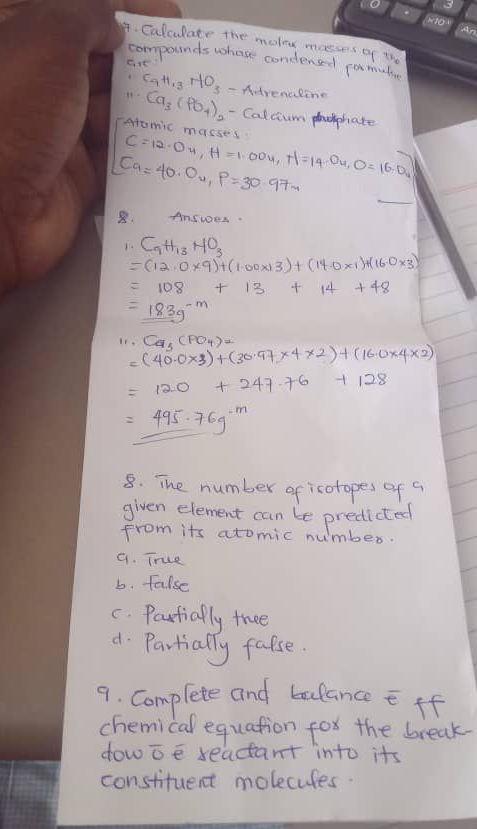 3
0
x10ˣ
An
7. Calculate the molar masses of the
compounds whose condensed formulae
are:
i. C9H13HO3 - Adrenaline
ii. Ca3(PO4)2 - Calcium phosphate
[Atomic masses:
C=12.0u, H=1.00u, H=14.0u, O=16.0u
Ca=40.0u, P=30.97u]
8. Answer.
i. C9H13HO3
=(12.0x9)+(1.00x13)+(14.0x1)+(16.0x3)
= 108 + 13 + 14 +48
= 183g⁻ᵐ
ii. Ca3(PO4)2
=(40.0x3)+(30.97x4x2)+(16.0x4x2)
= 120 + 247.76 + 128
= 495.76g⁻ᵐ
8. The number of isotopes of a
given element can be predicted
from its atomic number.
a. True
b. false
c. Partially true
d. Partially false.
9. Complete and balance ē ff
chemical equation for the break-
dow ō ē reactant into its
constituent molecules.